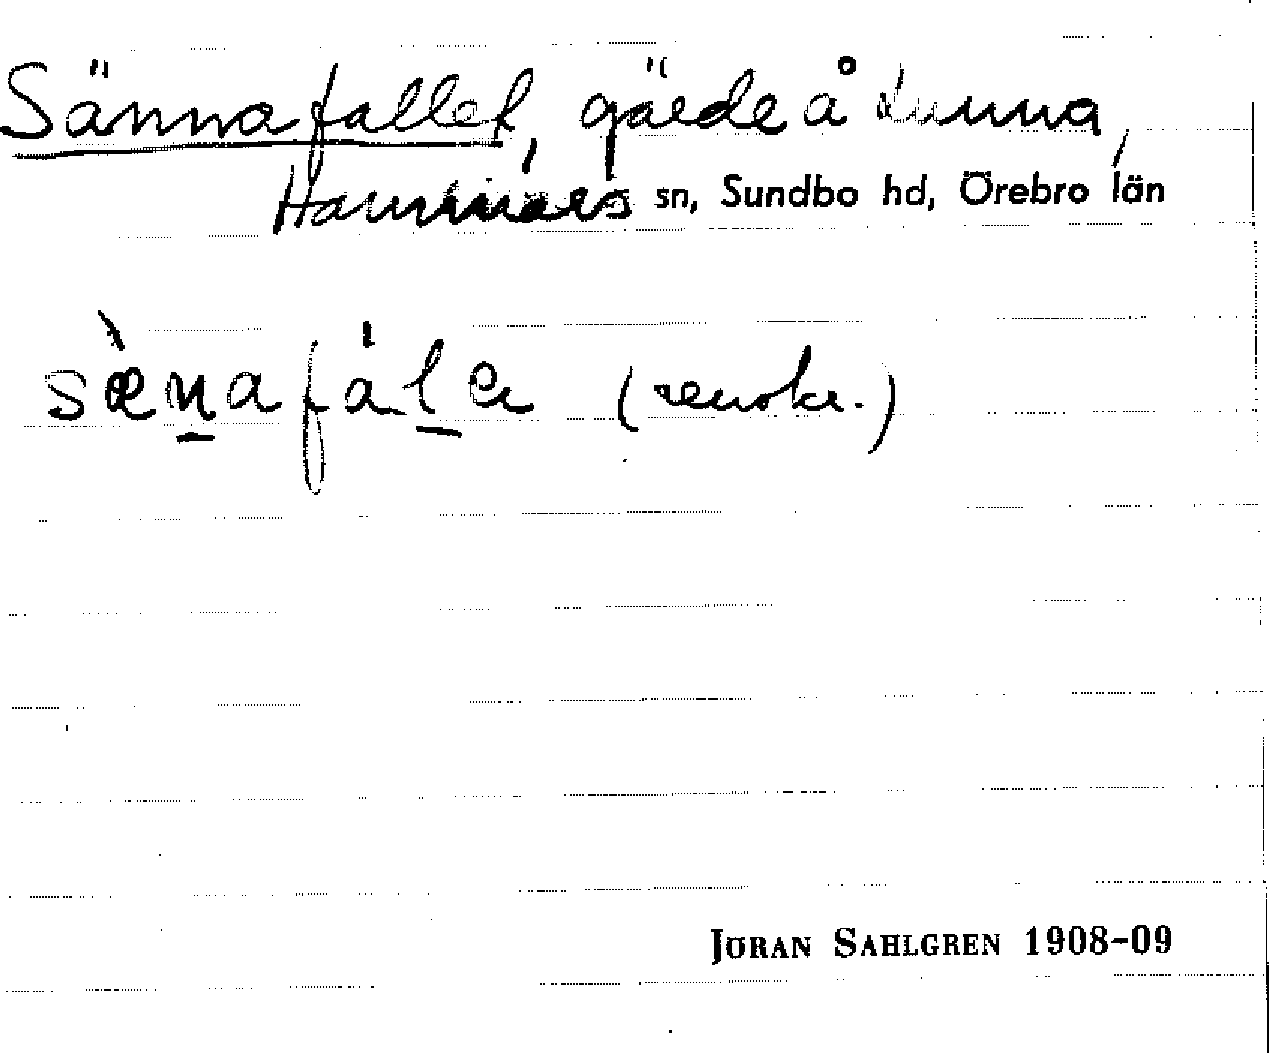 Sännafallet, gärde å Lunna,
Hammars sn, Sundbo hd, Örebro län
sæ̀nafál (renskr.)
JÖRAN SAHLGREN 1908–09